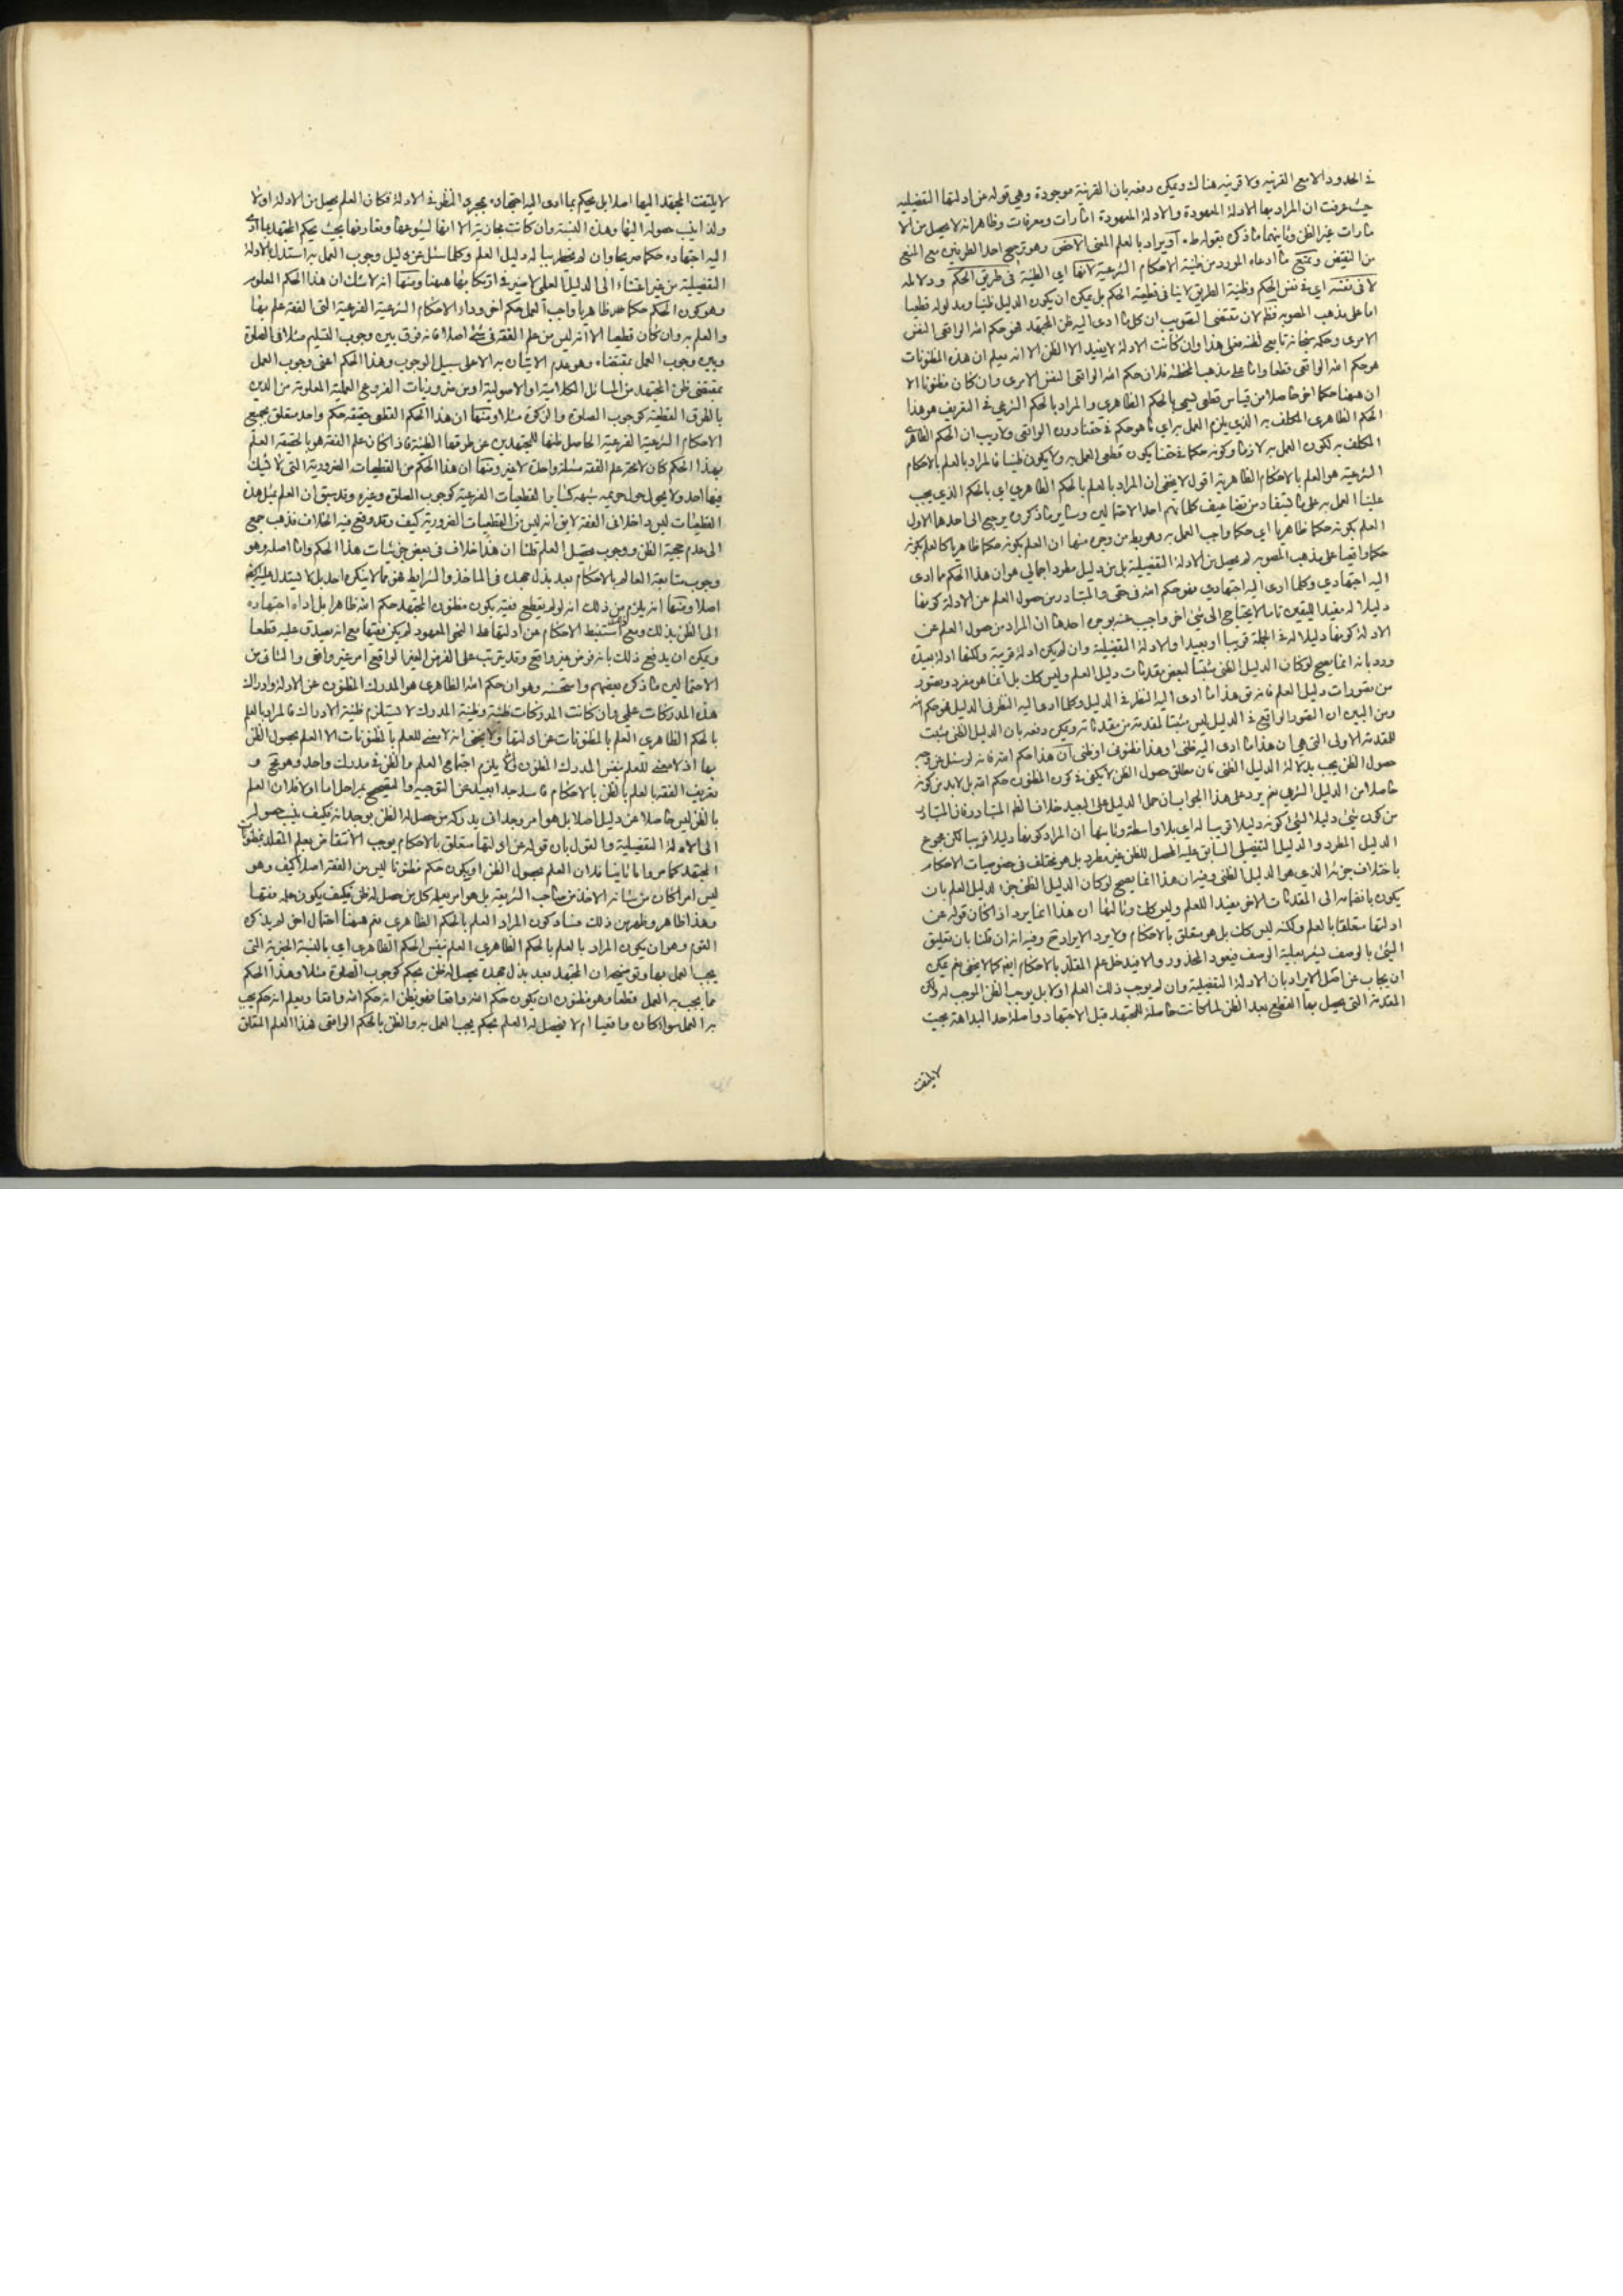 في الحدود الا مع القرينه ولا قرينه هناك ويمكن دفعه بان القرينة موجودة وهي قوله عن ادلتها التفصيليه
حيث عرفت ان المراد بها الادلة المعهودة والادلة المعهودة امارات ومعرفات وظاهر انه لا يحصل من الا
مارات غير الظن وثانيهما ما ذكره بقوله ط او يراد بالعلم المعنى الاخص وهو ترجيح احد الطرفين مع المنع
من النقيض ويمنع ما ادعاه المورد من ظنية الاحكام الشرعية لانها اي الظنية في طريق الحكم ودلالته
لا في نفسه اي في نفس الحكم وظنية الطريق لا ينافي قطعية الحكم بل يمكن ان يكون الدليل ظنيا ومدلوله قطعيا
اما على مذهب المصوبه فظ لان مقتضى التصويب ان كل ما ادى اليه ظن المجتهد فهو حكم الله الواقعي النفس
الامرى وحكمه سبحانه تابع لظنه فعلى هذا وان كانت الادلة لا يفيد الا الظن الا انه يعلم ان هذه المظنونات
هو حكم الله الواقعي قطعا واما على مذهب المخطئه فلان حكم الله الواقعي النفس الامرى وان كان مظنونا الا
ان ههنا حكما اخر حاصلا من قياس قطعي يسمى بالحكم الظاهري والمراد بالحكم الشرعي في التعريف هو هذا
الحكم الظاهرى المكلف به الذي يلزم العمل به اي ما هو حكم في حقنا دون الواقعي ولا ريب ان الحكم الظاهرى
المكلف به لكون العمل به لازما وكونه حكما في حقنا يكون قطعى العمل به ولا يكون ظنيا فالمراد بالعلم بالاحكام
الشرعيه هو العلم بالاحكام الظاهرية اقول لا يخفى ان المراد بالعلم بالحكم الظاهري اي بالحكم الذي يجب
علينا العمل به على ما يستفاد من تضاعيف كلماتهم احد الاحتمالين وساير ما ذكروه يرجع الى احدها الاول
العلم بكونه حكما ظاهريا اي حكما واجب العمل به وهو بط من وجوه منها ان العلم بكونه حكما ظاهريا كالعلم بكونه
حكما واقعيا على مذهب المصوبه لم يحصل من الادلة التفصيلية بل من دليل مطرد اجمالي هو ان هذا الحكم مما ادى
اليه اجتهادي وكلما ادى اليه اجتهادي فهو حكم الله في حقى والمتبادر من حصول العلم عن الادلة كونها
دليلا له مفيدا لليقين تاما لا يحتاج الى شئ اخر واجيب عنه بوجوه احدها ان المراد من حصول العلم عن
الادلة كونها دليلا له في الجملة قريبا او بعيدا والادلة التفصيلية وان لم يكن ادلة قريبة ولكنها ادلة بعيدة
ورد بانه انما يصح لو كان الدليل الظني مثبتا لبعض مقدمات دليل العلم وليس كك بل انما هو مفرد وتصور
من تصورات دليل العلم فانه ق هذا ما ادى اليه النظر في الدليل وكلما ادى اليه النظر في الدليل فهو حكم الله
ومن البين ان التصور الواقع في الدليل ليس مثبتا لمقدمة من مقدماته ويمكن دفعه بان الدليل الظني مثبت
للمقدمة الاولى التي هي ان هذا ما ادى اليه ظني او هذا مظنوني او ظني ان هذا حكم الله فانه لو سئل عن وجه
حصول الظن يجب بدلالة الدليل الظني فان مطلق حصول الظن لا يكفى في كون المظنون حكم الله بل لا بد من كونه
حاصلا من الدليل الشرعي نعم يرد على هذا الجواب ان حمل الدليل على البعيد خلاف الظ المتبادر فان المتبادر
من كون شئ دليلا لشئ كونه دليلا قريبا له اي بلا واسطة وثانيها ان المراد كونها دليلا قريبا لكن مجموع
الدليل المطرد والدليل التفصيلى السابق عليه المحصل للظن غير مطرد بل هو مختلف في خصوصيات الاحكام
باختلاف جزئه الذي هو الدليل الظني وفيه ان هذا انما يصح لو كان الدليل الظني جزء الدليل العلم بان
يكون بانضمامه الى المقدمات الاخر مفيدا للعلم وليس كك وثالثها ان هذا انما يرد اذا كان قوله عن
ادلتها متعلقا بالعلم ولكنه ليس كك بل هو متعلق بالاحكام ولا يرد الايراد ح وفيه انه ان قلنا بان تعليق
الشئ بالوصف يشعر بعلية الوصف فيعود المحذور والا فيدخل علم المقلد بالاحكام ايضا كما لا يخفى نعم يمكن
ان يجاب عن اصل الايراد بان الادلة التفصيلية وان لم يوجب ذلك العلم اولا بل يوجب الظن الموجب له ولكن
المقدمة التي يحصل بها القطع بعد الظن لما كانت حاصلة للمجتهد قبل الاجتهاد واصلة حد البداهة بحيث
لا يلتفت
لا يلتفت المجتهد اليها اصلا بل يحكم بما ادى اليه اجتهاده بمجرد النظر في الادلة فكان العلم يحصل من الادلة اولا
ولذا ينسب حصوله اليها وهذه النسبة وان كانت مجازية الا انها لشيوعها وتعارفها بحيث يحكم المجتهد بما ادى
اليه اجتهاده حكما صريحا وان لم يخطر بباله دليل العلم وكلما سئل عن دليل وجوب العمل به استدل بالادلة
التفصيلية من غير اعتناء الى الدليل العلمى لا ضير في ارتكابها ههنا ومنها انه لا شك ان هذا الحكم المعلوم
وهو كون الحكم حكما ظاهريا واجب العمل حكم اخر وراء الاحكام الشرعية الفرعية التي الفقه علم بها
والعلم به وان كان قطعيا الا انه ليس من علم الفقه في شئ اصلا فانه فرق بين وجوب التسليم مثلا في الصلوة
وبين وجوب العمل بمقتضاه وهو عدم الاتيان به الا على سبيل الوجوب وهذا الحكم اعنى وجوب العمل
بمقتضى ظن المجتهد من المسائل الكلامية او الاصولية او من ضروريات الفروع العملية المعلومة من الدين
بالطرق القطعية كوجوب الصلوة والزكوة مثلا ومنها ان هذا الحكم القطعي حقيقة حكم واحد متعلق بجميع
الاحكام الشرعية الفرعية الحاصل ظنها للمجتهدين عن طرقها الظنية فاذا كان علم الفقه هو بالحقيقة العلم
بهذا الحكم كان لا محة علم الفقه مسئلة واحدة لا غير ومنها ان هذا الحكم من القطعيات الضرورية التي لا شك
فيها احد ولا يحول حول حريمه شبهه كساير القطعيات الفرعية كوجوب الصلوة وغيره وقد سبق ان العلم بمثل هذه
القطعيات ليس داخلا في الفقه لا يق انه ليس من القطعيات الضرورية كيف وقد وقع فيه الخلاف فذهب جمع
الى عدم حجية الظن ووجوب تحصيل العلم قلنا ان هذا خلاف في بعض جزئيات هذا الحكم واما اصله وهو
وجوب متابعة العالم بالاحكام بعد بذل جهده في الماخذ والشرايط فهو مما لا ينكره احد بل لا يستدل عليه
اصلا ومنها انه يلزم من ذلك انه لو لم يقطع فقيه بكون مظنون المجتهد حكم الله ظاهرا بل اداه اجتهاده
الى الظن بذلك ومع استنبط الاحكام عن ادلتها على النحو المعهود لم يكن فقيها مع انه يصدق عليه قطعا
ويمكن ان يدفع ذلك بانه فرض غير واقع وقد يترتب على الفرض الغير الواقع امر غير واقعى والثانى من
الاحتمالين ما ذكره بعضهم واستحسنه وهو ان حكم الله الظاهرى هو المدرك المظنون عن الادلة وادراك
هذه المدركات علمي وان كانت المدركات ظنية وظنية المدرك لا يستلزم ظنية الادراك فالمراد بالعلم
بالحكم الظاهرى العلم بالمظنونات عن ادلتها ولا يخفى انه لا معنى للعلم بالمظنونات الا العلم بحصول الظن
بها اذ لا معنى للعلم بنفس المدرك المظنون والا يلزم اجتماع العلم والظن في مدرك واحد وهو مح و
تعريف الفقه بالعلم بالظن بالاحكام فاسد جدا بعيد عن التوجيه والتصحيح بمراحل اما اولا فلان العلم
بالظن ليس حاصلا عن دليل اصلا بل هو امر وجداني يدركه من حصل له الظن بوجدانه فكيف ينسب حصوله
الى الادلة التفصيلية والقول بان قوله عن ادلتها متعلق بالاحكام يوجب الانتقاض بعلم المقلد بمظنونات
المجتهد كما مر واما ثانيا فلان العلم بحصول الظن او بكون حكم مظنونا ليس من الفقه اصلا كيف وهو
ليس امرا كان من شانه الاخذ من صاحب الشريعة بل هو امر يعلمه كل من حصل له ظن فكيف يكون علمه فقها
وهذا ظاهر وظهر من ذلك فساد كون المراد العلم بالحكم الظاهرى نعم ههنا احتمال اخر لم يذكره
القوم وهو ان يكون المراد بالعلم بالحكم الظاهري العلم بنفس الحكم الظاهرى اي بالنسبة الجزئية التي
يجب العمل بها وتوضيحه ان المجتهد بعد بذل جهده يحصل له ظن بحكم كوجوب الصلوة مثلا وهذا الحكم
مما يجب به العمل قطعا وهو مظنون ان يكون حكم الله واقعا فهو يظن انه حكم الله واقعا ويعلم انه حكم يجب
به العمل سواء كان واقعيا ام لا فيحصل له العلم بحكم يجب العمل به والظن بالحكم الواقعى فهذا العلم المتعلق